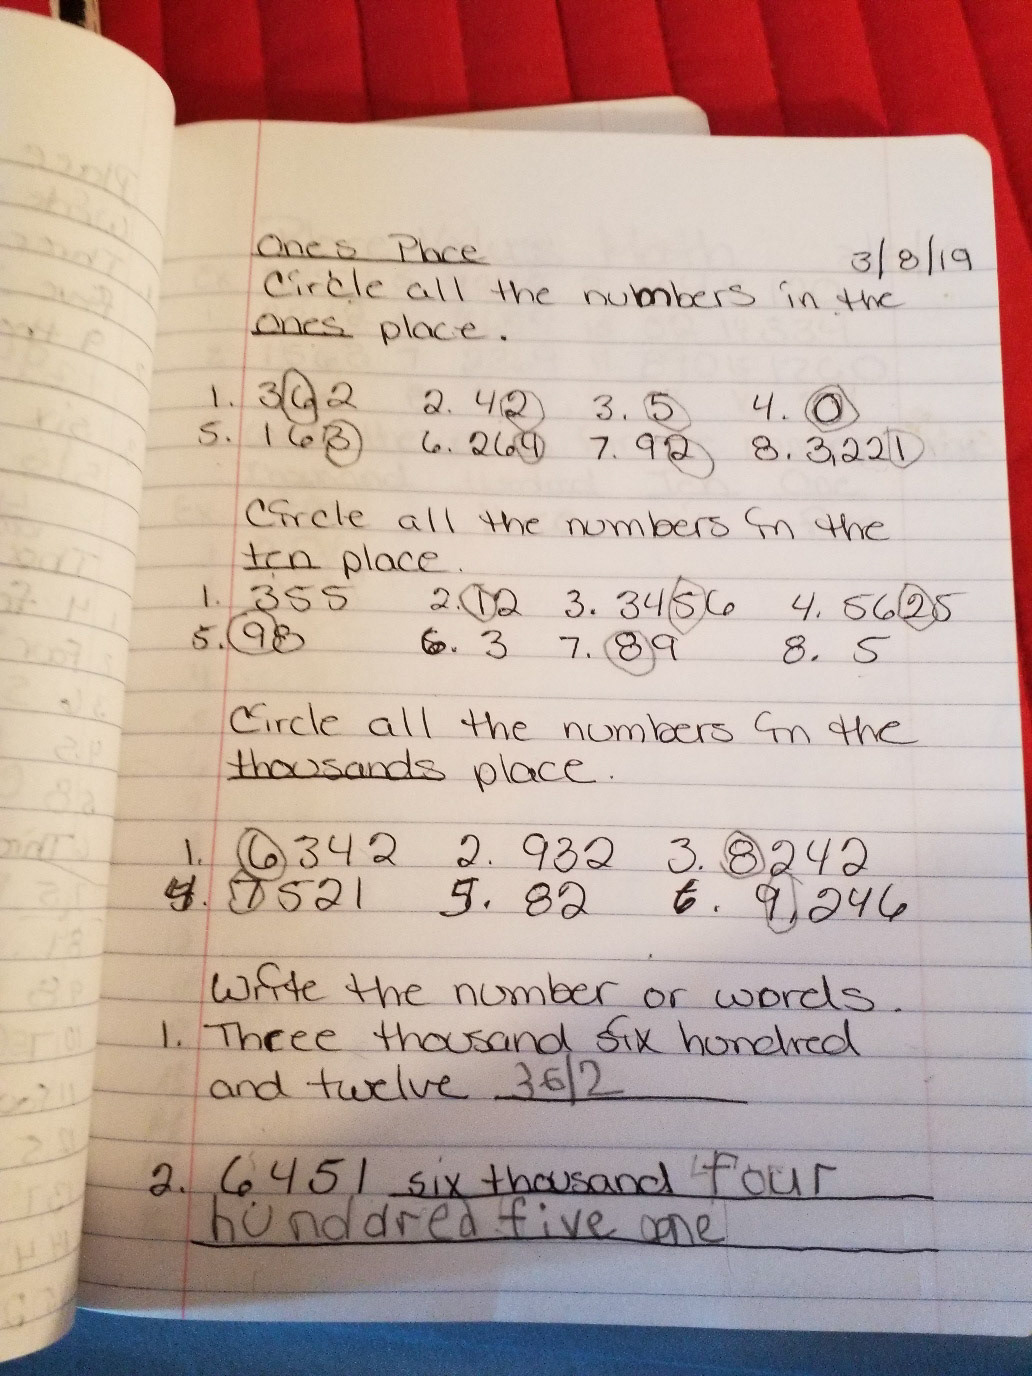 Ones Place
3/8/19
Circle all the numbers in the
ones place.
1. 362 2. 42 3. 5 4. 0
5. 163 6. 264 7. 92 8. 3,221
Circle all the numbers in the
ten place.
1. 355 2. 12 3. 3456 4. 5625
5. 98 6. 3 7. 89 8. 5
Circle all the numbers in the
thousands place.
1. 6342 2. 932 3. 8242
4. 7521 5. 82 6. 9,246
Write the number or words.
1. Three thousand six hundred
and twelve 3612
2. 6451 six thousand four
hunddred five one